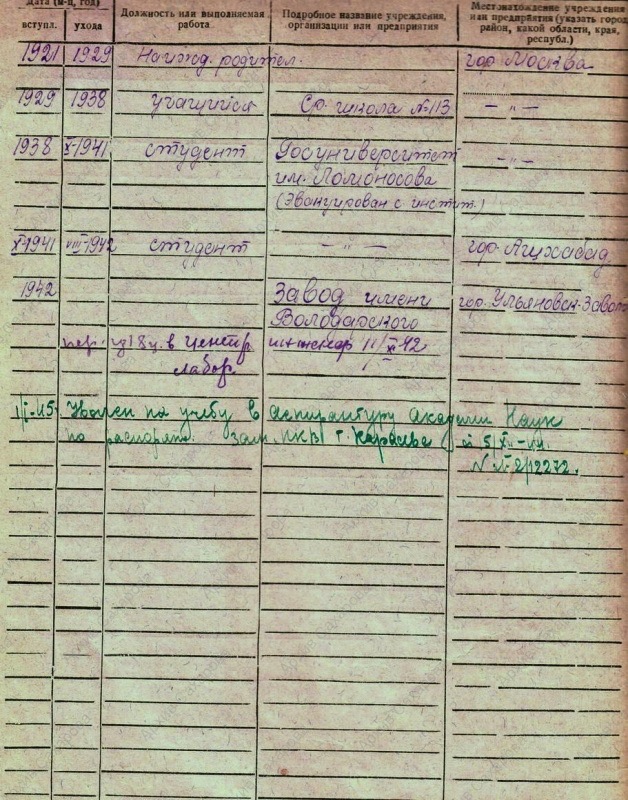 Дата (м-ц, год)
вступл. ухода
Должность или выполняемая работа
Подробное название учреждения, организации или предприятия
Местонахождение учреждения или предприятия (указать город, район, какой области, края, республ.)
1921 1929 На ижд. родител. гор. Москва
1929 1938 учащийся Ср. школа № 113 — " —
1938 X-1941 студент Госуниверситет — " —
им. Ломоносова
(Эвакуирован с инстит.)
X-1941 VIII-1942 студент — " — гор. Ашхабад
1942 Завод имени гор. Ульяновск-Завол
Володарского
пер. из 18 ц. в центр. инженер 11/XI-42
лабор.
1/I-45. Уволен на учебу в аспирантуру Академии Наук
по распоряж. зам. НКВ т. Карасева от 5/XII-44.